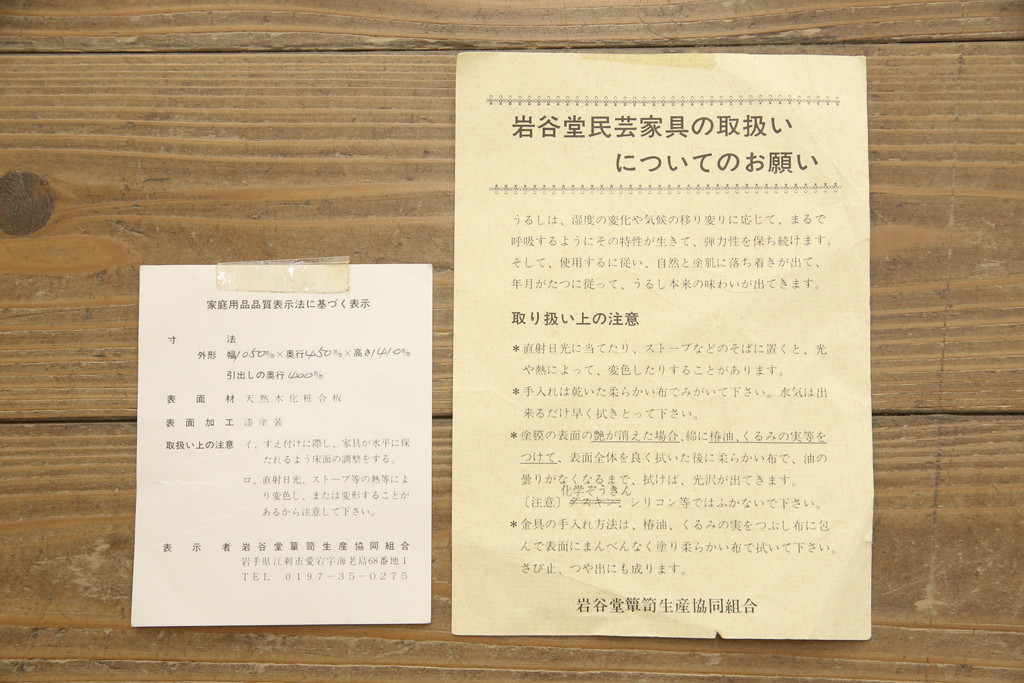 家庭用品品質表示法に基づく表示
寸法
外形 幅1050㎜×奥行450㎜×高さ1410㎜
引出しの奥行400㎜
表面材 天然木化粧合板
表面加工 漆塗装
取扱い上の注意 イ、すえ付けに際し、家具が水平に保
たれるよう床面の調整をする。
ロ、直射日光、ストーブ等の熱等によ
り変色し、または変形することが
あるから注意して下さい。
表示者 岩谷堂簞笥生産協同組合
岩手県江刺市愛宕字海老島68番地1
TEL 0197-35-0275
岩谷堂民芸家具の取扱い
についてのお願い
うるしは、湿度の変化や気候の移り変りに応じて、まるで
呼吸するようにその特性が生きて、弾力性を保ち続けます。
そして、使用するに従い、自然と塗肌に落ち着きが出て、
年月がたつに従って、うるし本来の味わいが出てきます。
取り扱い上の注意
*直射日光に当てたり、ストーブなどのそばに置くと、光
や熱によって、変色したりすることがあります。
*手入れは乾いた柔らかい布でみがいて下さい。水気は出
来るだけ早く拭きとって下さい。
*塗膜の表面の艶が消えた場合、綿に椿油、くるみの実等を
つけて、表面全体を良く拭いた後に柔らかい布で、油の
曇りがなくなるまで、拭けば、光沢が出てきます。
化学ぞうきん
〔注意〕ダスキン、シリコン等ではふかないで下さい。
*金具の手入れ方法は、椿油、くるみの実をつぶし布に包
んで表面にまんべんなく塗り柔らかい布で拭いて下さい。
さび止、つや出にも成ります。
岩谷堂簞笥生産協同組合